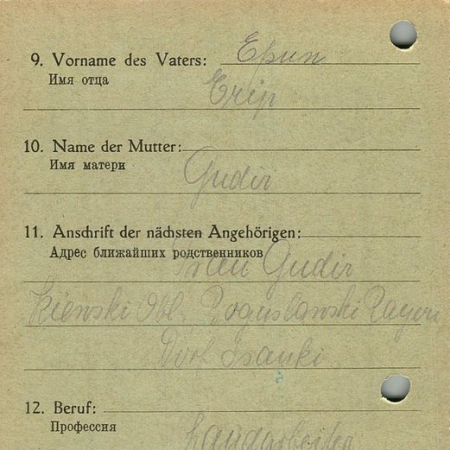 9. Vorname des Vaters:
Имя отца
10. Name der Mutter:
Имя матери
Gudir
11. Anschrift der nächsten Angehörigen:
Адрес ближайших родственников
Frau Gudir
Kiewski Obl. Boguslawski Rayon
Dorf Isauki
12. Beruf:
Профессия
Landarbeiter